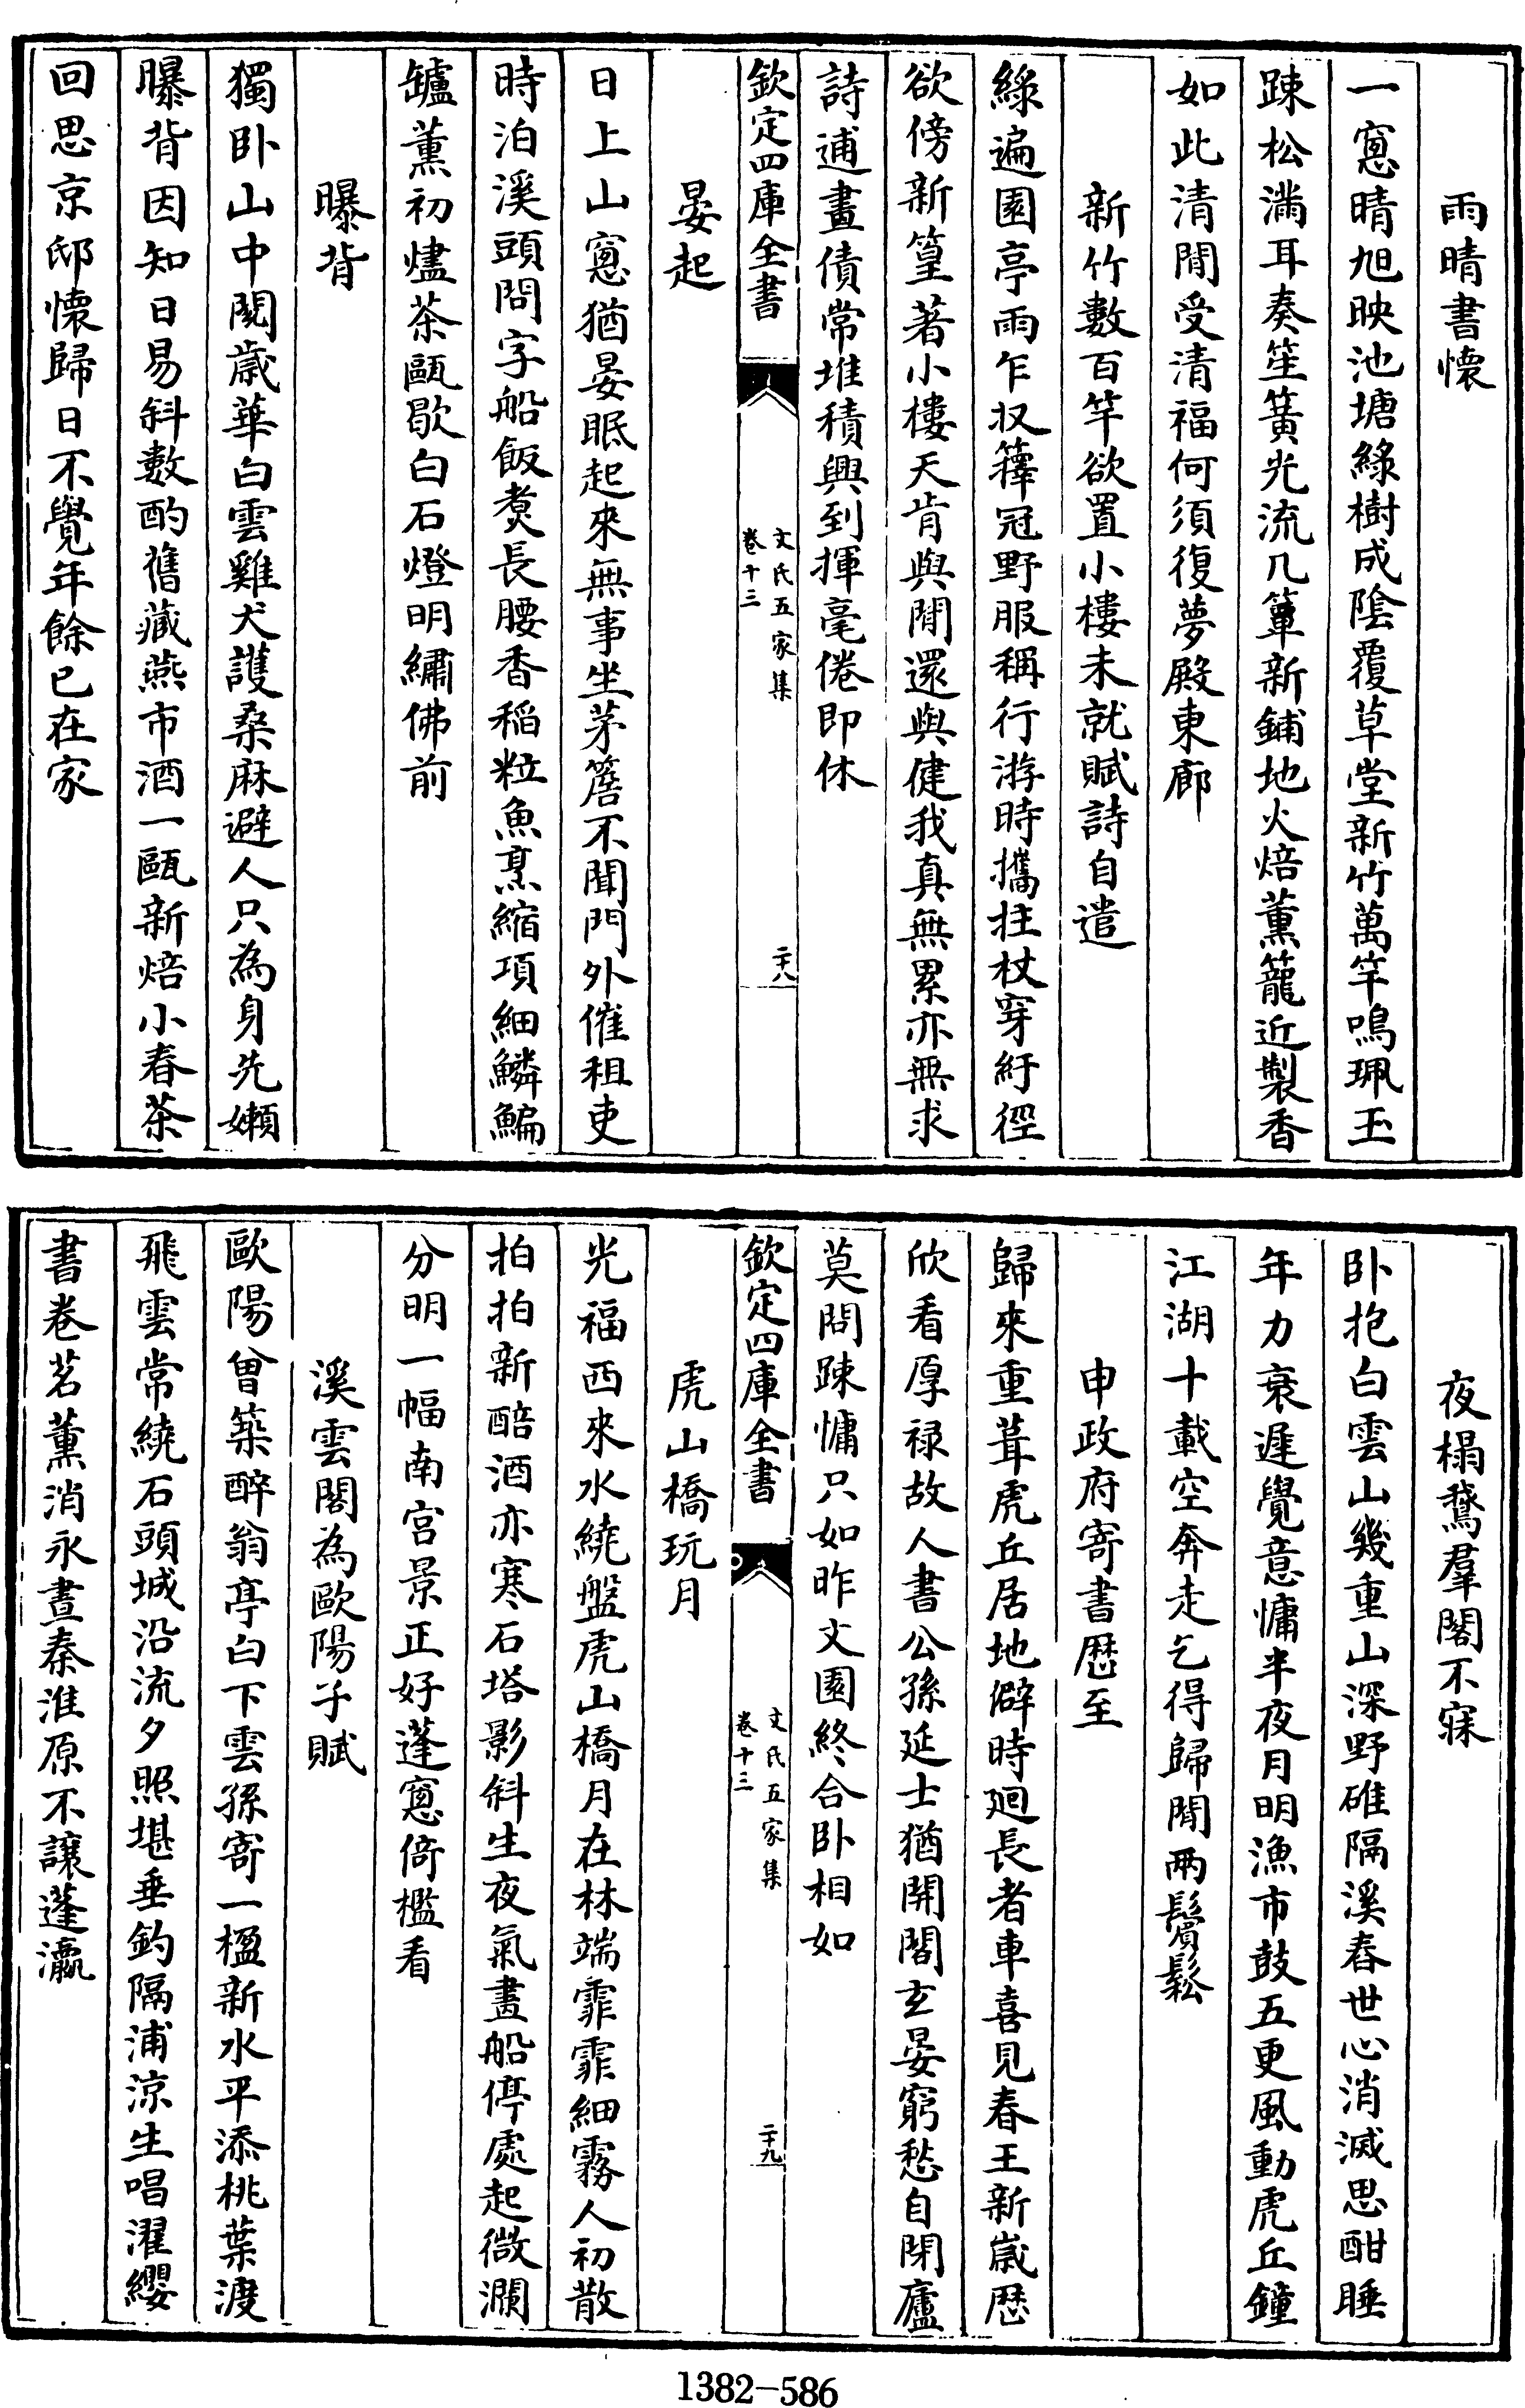 雨晴書懷
一窓晴旭映池塘綠樹成陰覆草堂新竹萬竿鳴珮玉
踈松滿耳奏笙簧光流几簟新鋪地火焙薰籠近製香
如此清閒受清福何須復夢殿東廊
新竹數百竿欲置小樓未就賦詩自遣
綠遍園亭雨乍収籜冠野服稱行游時攜拄杖穿紆徑
欲傍新篁著小樓天肯與閒還與健我真無累亦無求
詩逋畫債常堆積興到揮毫倦即休
欽定四庫全書
文氏五家集
卷十三
二十八
晏起
日上山窓猶晏眠起來無事坐茅簷不聞門外催租吏
時泊溪頭問字船飯煑長腰香稻粒魚烹縮項細鱗鯿
罏薰初燼茶甌歇白石燈明繡佛前
曝背
獨卧山中閱歲華白雲雞犬護桑麻避人只為身先嬾
曝背因知日易斜數酌舊藏燕市酒一甌新焙小春茶
回思京邸懷歸日不覺年餘已在家
夜榻鵞羣閣不寐
卧抱白雲山幾重山深野碓隔溪舂世心消滅思酣睡
年力衰遲覺意慵半夜月明漁市鼓五更風動虎丘鐘
江湖十載空奔走乞得歸閒兩鬢鬆
申政府寄書歴至
歸來重葺虎丘居地僻時廻長者車喜見春王新歲歴
欣看厚禄故人書公孫延士猶開閤玄晏窮愁自閉廬
莫問踈慵只如昨文園終合卧相如
欽定四庫全書
文氏五家集
卷十三
二十九
虎山橋玩月
光福西來水繞盤虎山橋月在林端霏霏細霧人初散
拍拍新醅酒亦寒石塔影斜生夜氣畫船停處起微瀾
分明一幅南宮景正好蓬窓倚檻看
溪雲閣為歐陽子賦
歐陽曾築醉翁亭白下雲孫寄一楹新水平添桃葉渡
飛雲常繞石頭城沿流夕照堪垂釣隔浦涼生唱濯纓
書卷茗薰消永晝秦淮原不讓蓬瀛
1382-586